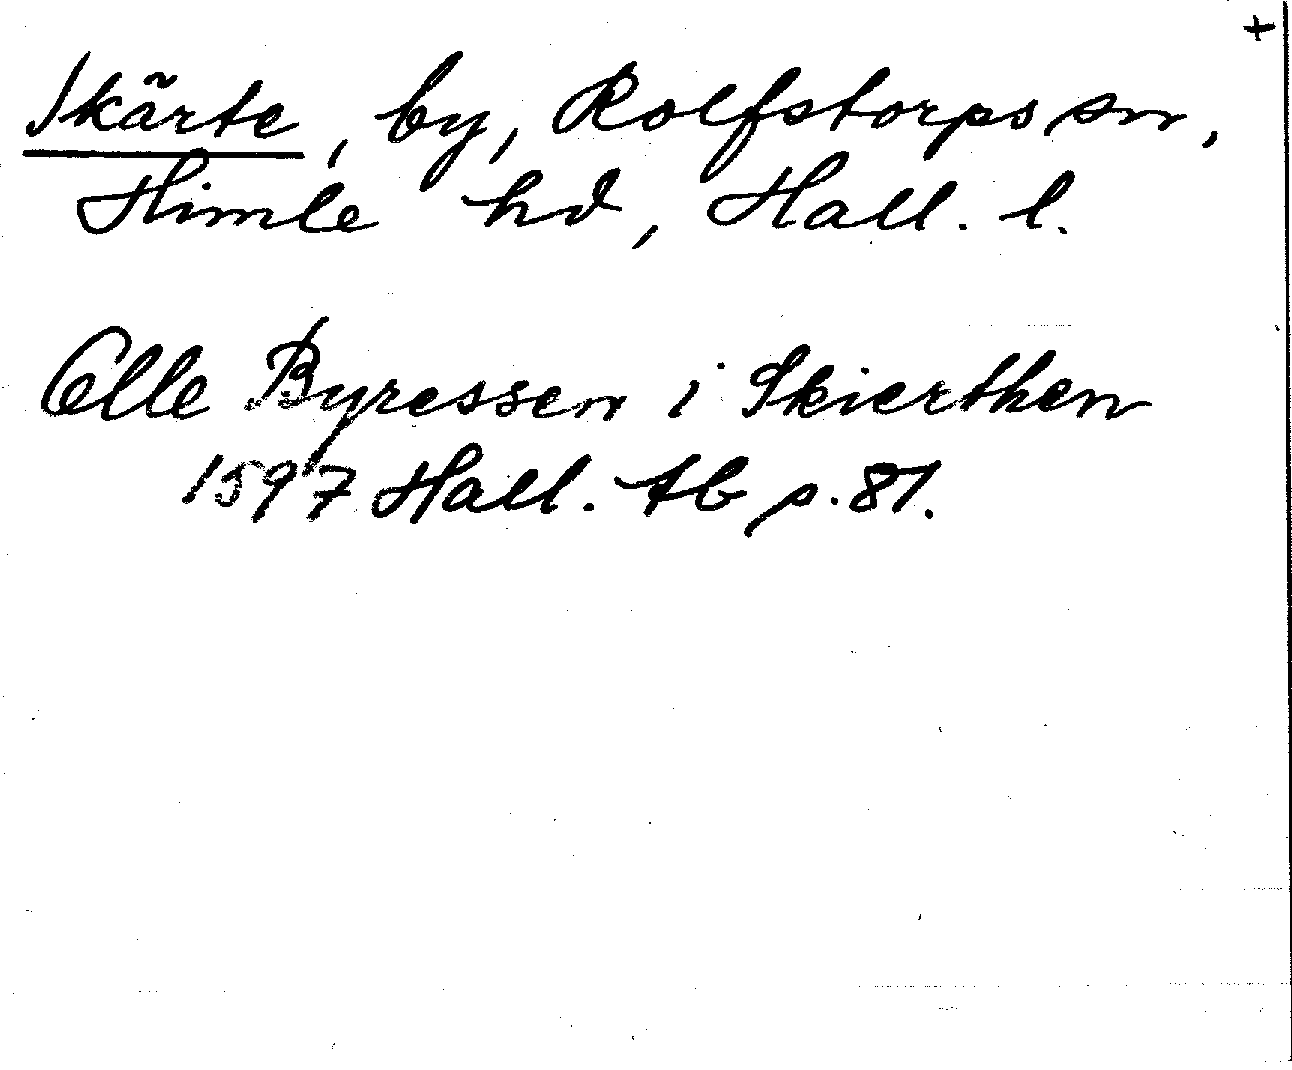 +
Skärte, by, Rolfstorps sn,
Himle hd, Hall. l.
Olle Byressen i Skierthen
1597 Hall. tb p. 81.